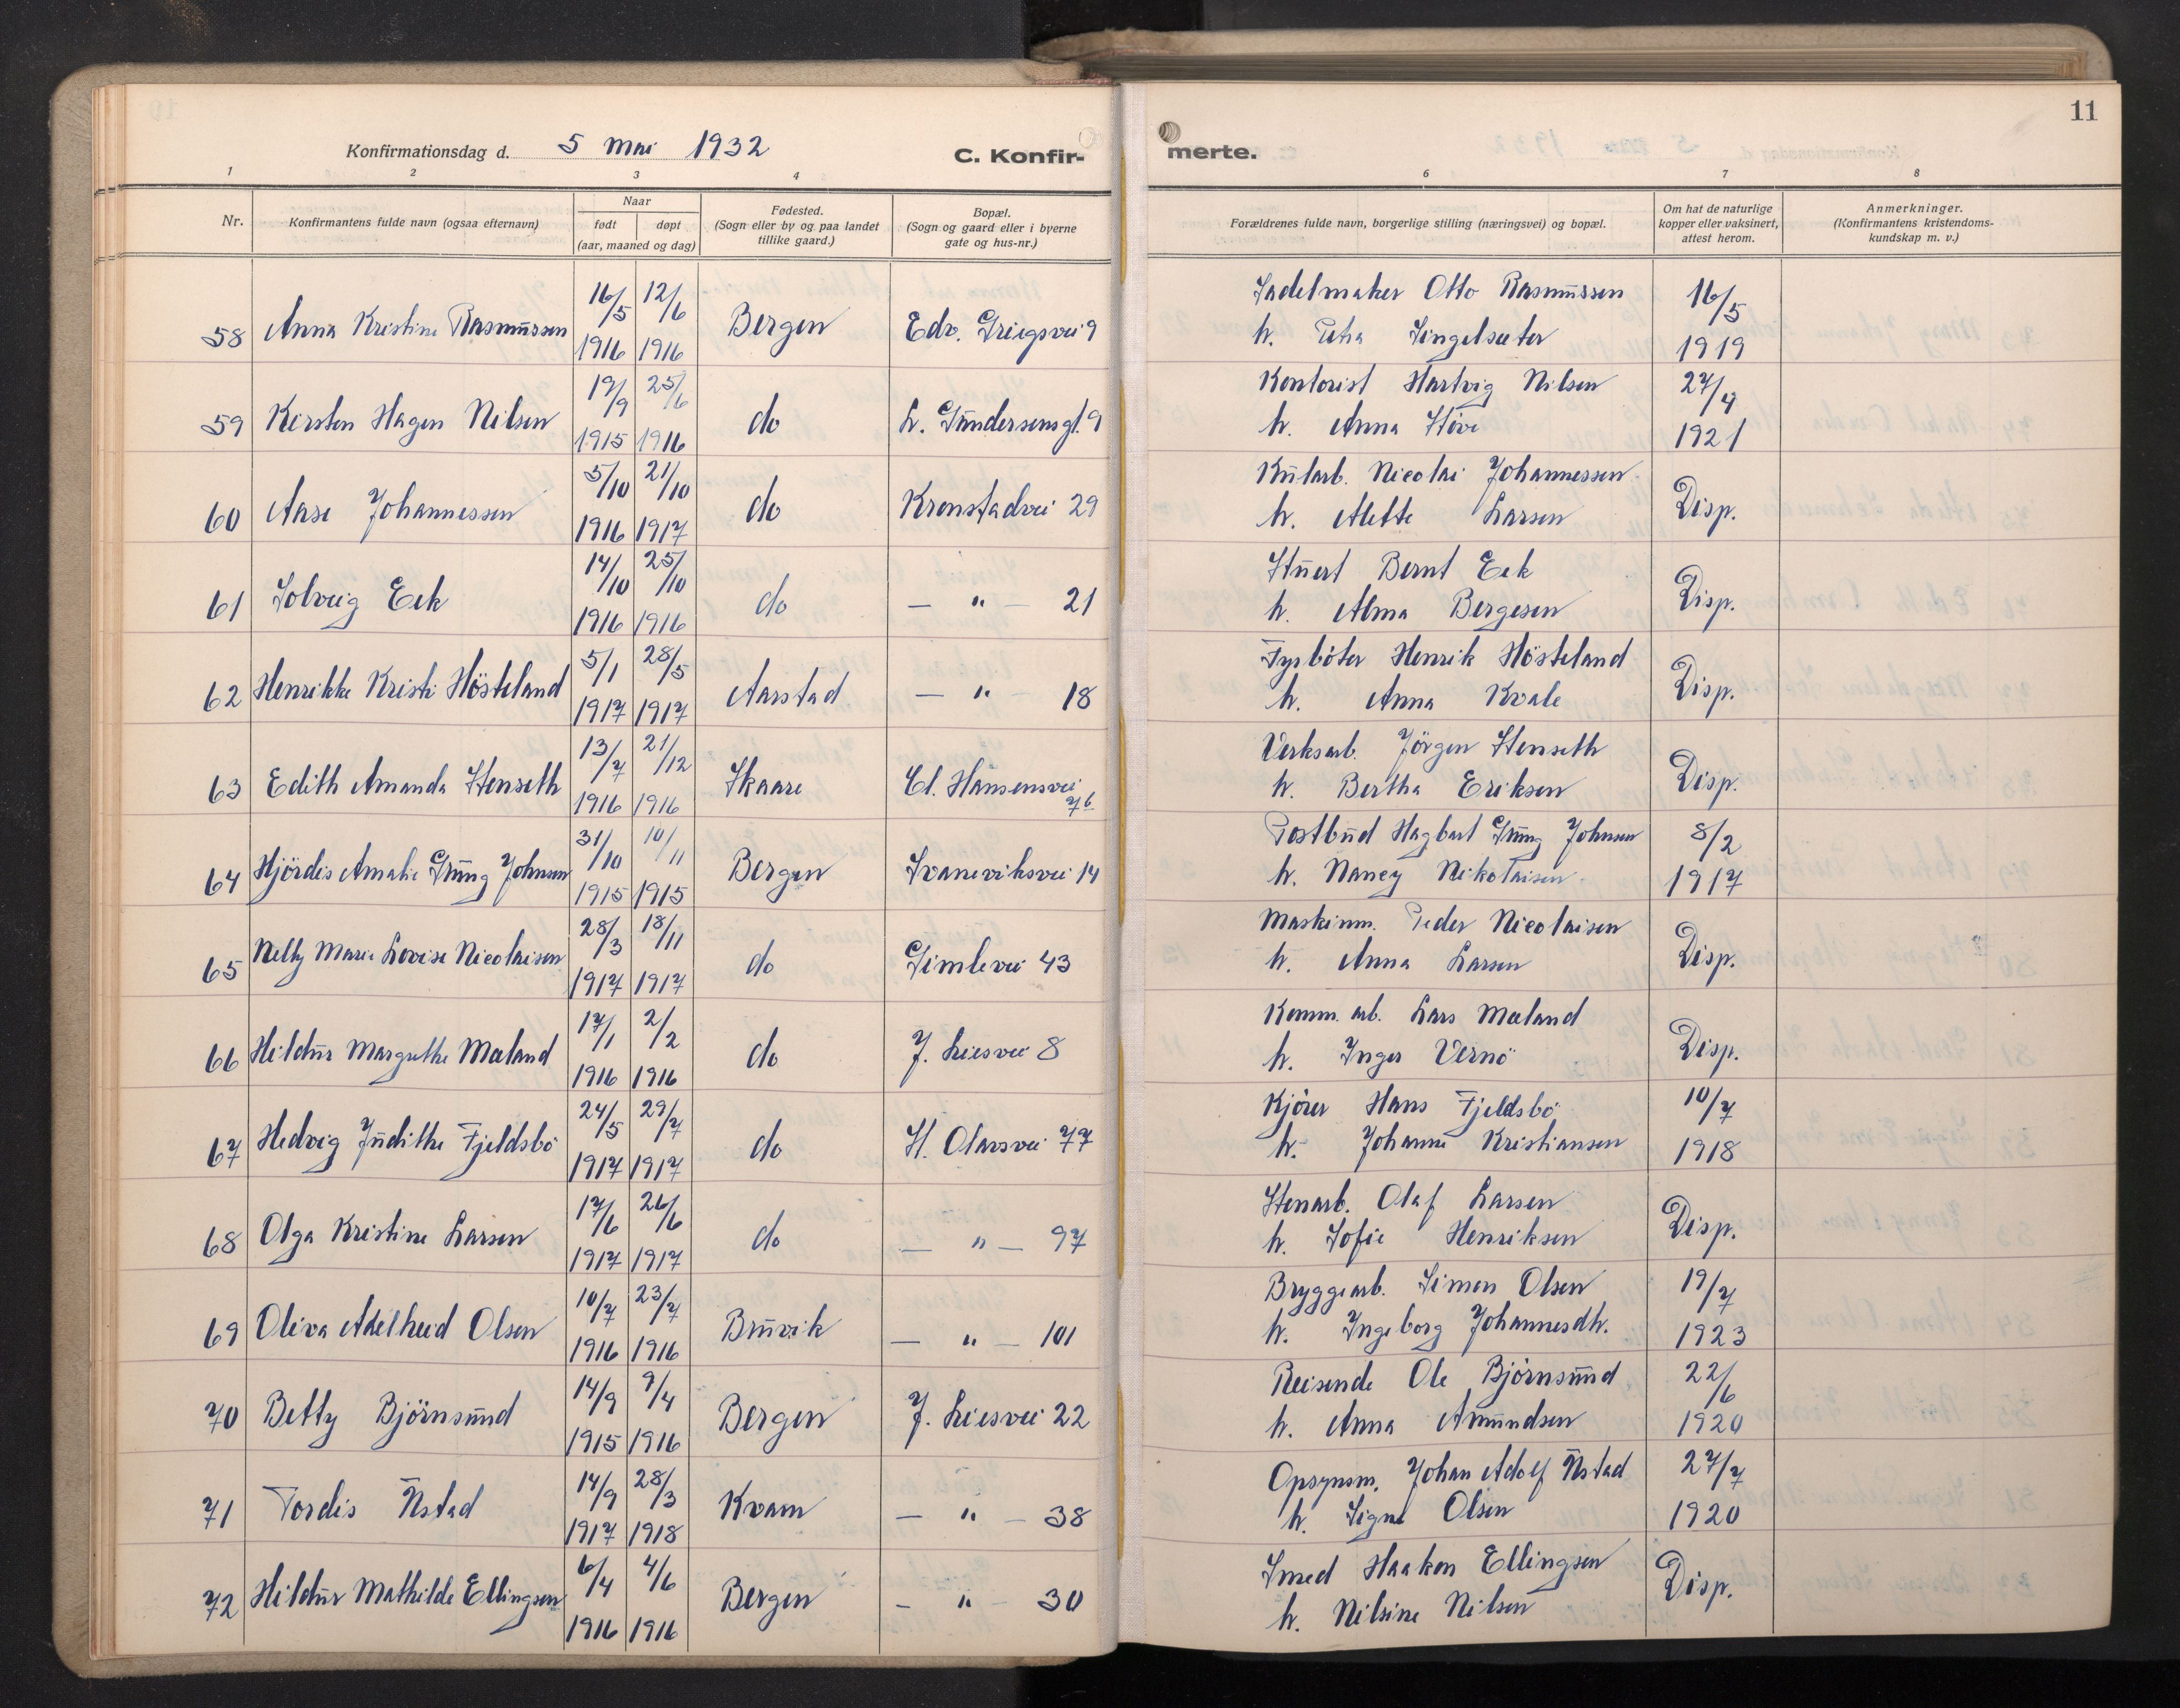 11
Konfirmationsdag d. 5 Mai 1932 C. Konfir-
merte.
1 2 3 4
6 7 8
Nr. Konfirmantens fulde navn (ogsaa efternavn) Naar født døpt (aar, maaned og dag) Fødested. (Sogn eller by og paa landet tillike gaard.) Bopæl. (Sogn og gaard eller i byerne gate og hus-nr.)
Forældrenes fulde navn, borgerlige stilling (næringsvei) og bopæl. Om hat de naturlige kopper eller vaksinert, attest herom. Anmerkninger. (Konfirmantens kristendoms-kundskap m. v.)
58 Anna Kristine Rasmussen 16/5 1916 12/6 1916 Bergen Edv. Griegsvei 9
Sadelmaker Otto Rasmussen 16/5
h. Petra Singelsæter 1919
59 Kirsten Hagen Nilsen 19/9 1915 25/6 1916 do L. Gundersensgt. 9
Kontorist Hartvig Nilsen 27/4
h. Anna Höve 1921
60 Aase Johannessen 5/10 1916 21/10 1917 do Kronstadvei 29
Kularb. Nicolai Johannessen Disp.
h. Alette Larsen
61 Solveig Eek 14/10 1916 25/10 1916 do — " — 21
Stuert Bernt Eek Disp.
h. Alma Bergesen
62 Henrikke Kristi Hösteland 5/1 1917 28/5 1917 Aarstad — " — 18
Fyrböter Henrik Hösteland Disp.
h. Anna Kvale
63 Edith Amanda Stenseth 13/7 1916 21/12 1916 Skaare Cl. Hansensvei 7b
Verksarb. Jörgen Stenseth Disp.
h. Bertha Eriksen
64 Hjördis Amalie Grung Johnsen 31/10 1915 10/11 1915 Bergen Svaneviksvei 14
Postbud Hagbart Grung Johnsen 8/2
h. Nancy Nikolaisen 1917
65 Nelly Marie Lovise Nicolaisen 28/3 1917 18/11 1917 do Gimlevei 43
Maskinm. Peder Nicolaisen Disp.
h. Anna Larsen
66 Hildur Margrethe Mæland 17/1 1916 2/2 1916 do J. Liesvei 8
Komm. arb. Lars Mæland Disp.
h. Inger Vernö
67 Hedvig Judithe Fjeldsbö 24/5 1917 29/7 1917 do St. Olavsvei 77
Kjörer Hans Fjeldsbö 10/7
h. Johanne Kristiansen 1918
68 Olga Kristine Larsen 17/6 1917 26/6 1917 do — " — 97
Stenarb. Olaf Larsen Disp.
h. Sofie Henriksen
69 Oliva Adelheid Olsen 10/7 1916 23/7 1916 Bruvik — " — 101
Bryggearb. Simon Olsen 19/7
h. Ingeborg Johannesdtr. 1923
70 Betty Björnsund 14/9 1915 9/4 1916 Bergen J. Liesvei 22
Reisende Ole Björnsund 22/6
h. Anna Amundsen 1920
71 Tordis Ustad 14/9 1917 28/3 1918 Kvam — " — 38
Opsynsm. Johan Adolf Ustad 27/7
h. Signe Olsen 1920
72 Hildur Mathilde Ellingsen 6/4 1916 4/6 1916 Bergen — " — 30
Smed Haakon Ellingsen Disp.
h. Nilsine Nilsen